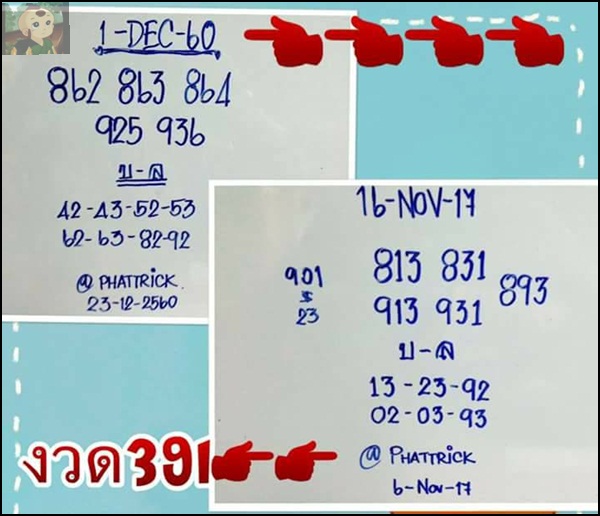 1-DEC-60
862 863 864
925 936
บ-ล
42-43-52-53
62-63-82-92
@ PHATTRICK.
23-12-2560
16-NOV-17
901
$
23
813 831
893
913 931
บ-ล
13-23-92
02-03-93
@ PHATTRICK
6-NOV-17
งวด391